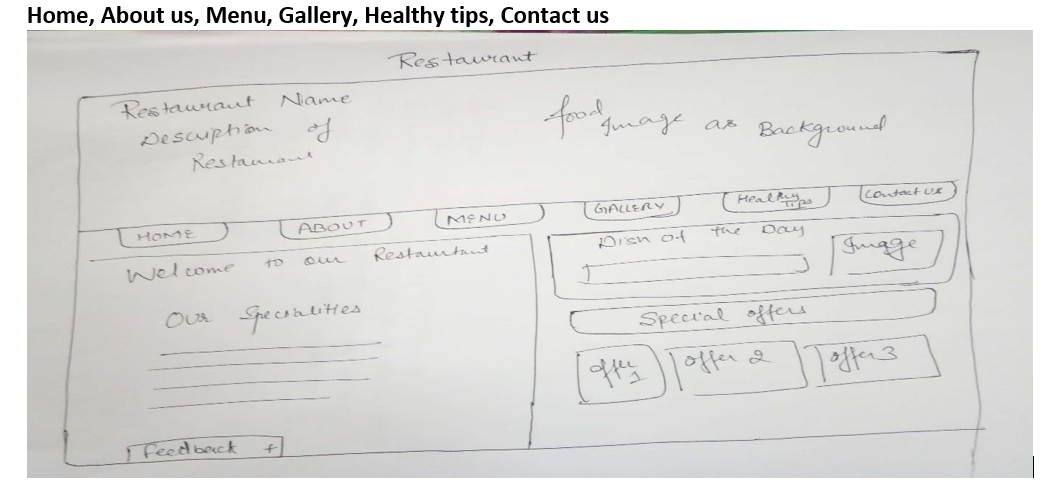 Home, About us, Menu, Gallery, Healthy tips, Contact us
Restaurant
Restaurant Name
Description of
Restaurant
food Image as Background
HOME
ABOUT
MENU
GALLERY
Healthy
Tips
Contact us
Welcome to our Restaurant
Our Specialities
Feedback +
Dish of the Day
Image
Special offers
offer
1
offer 2
offer 3